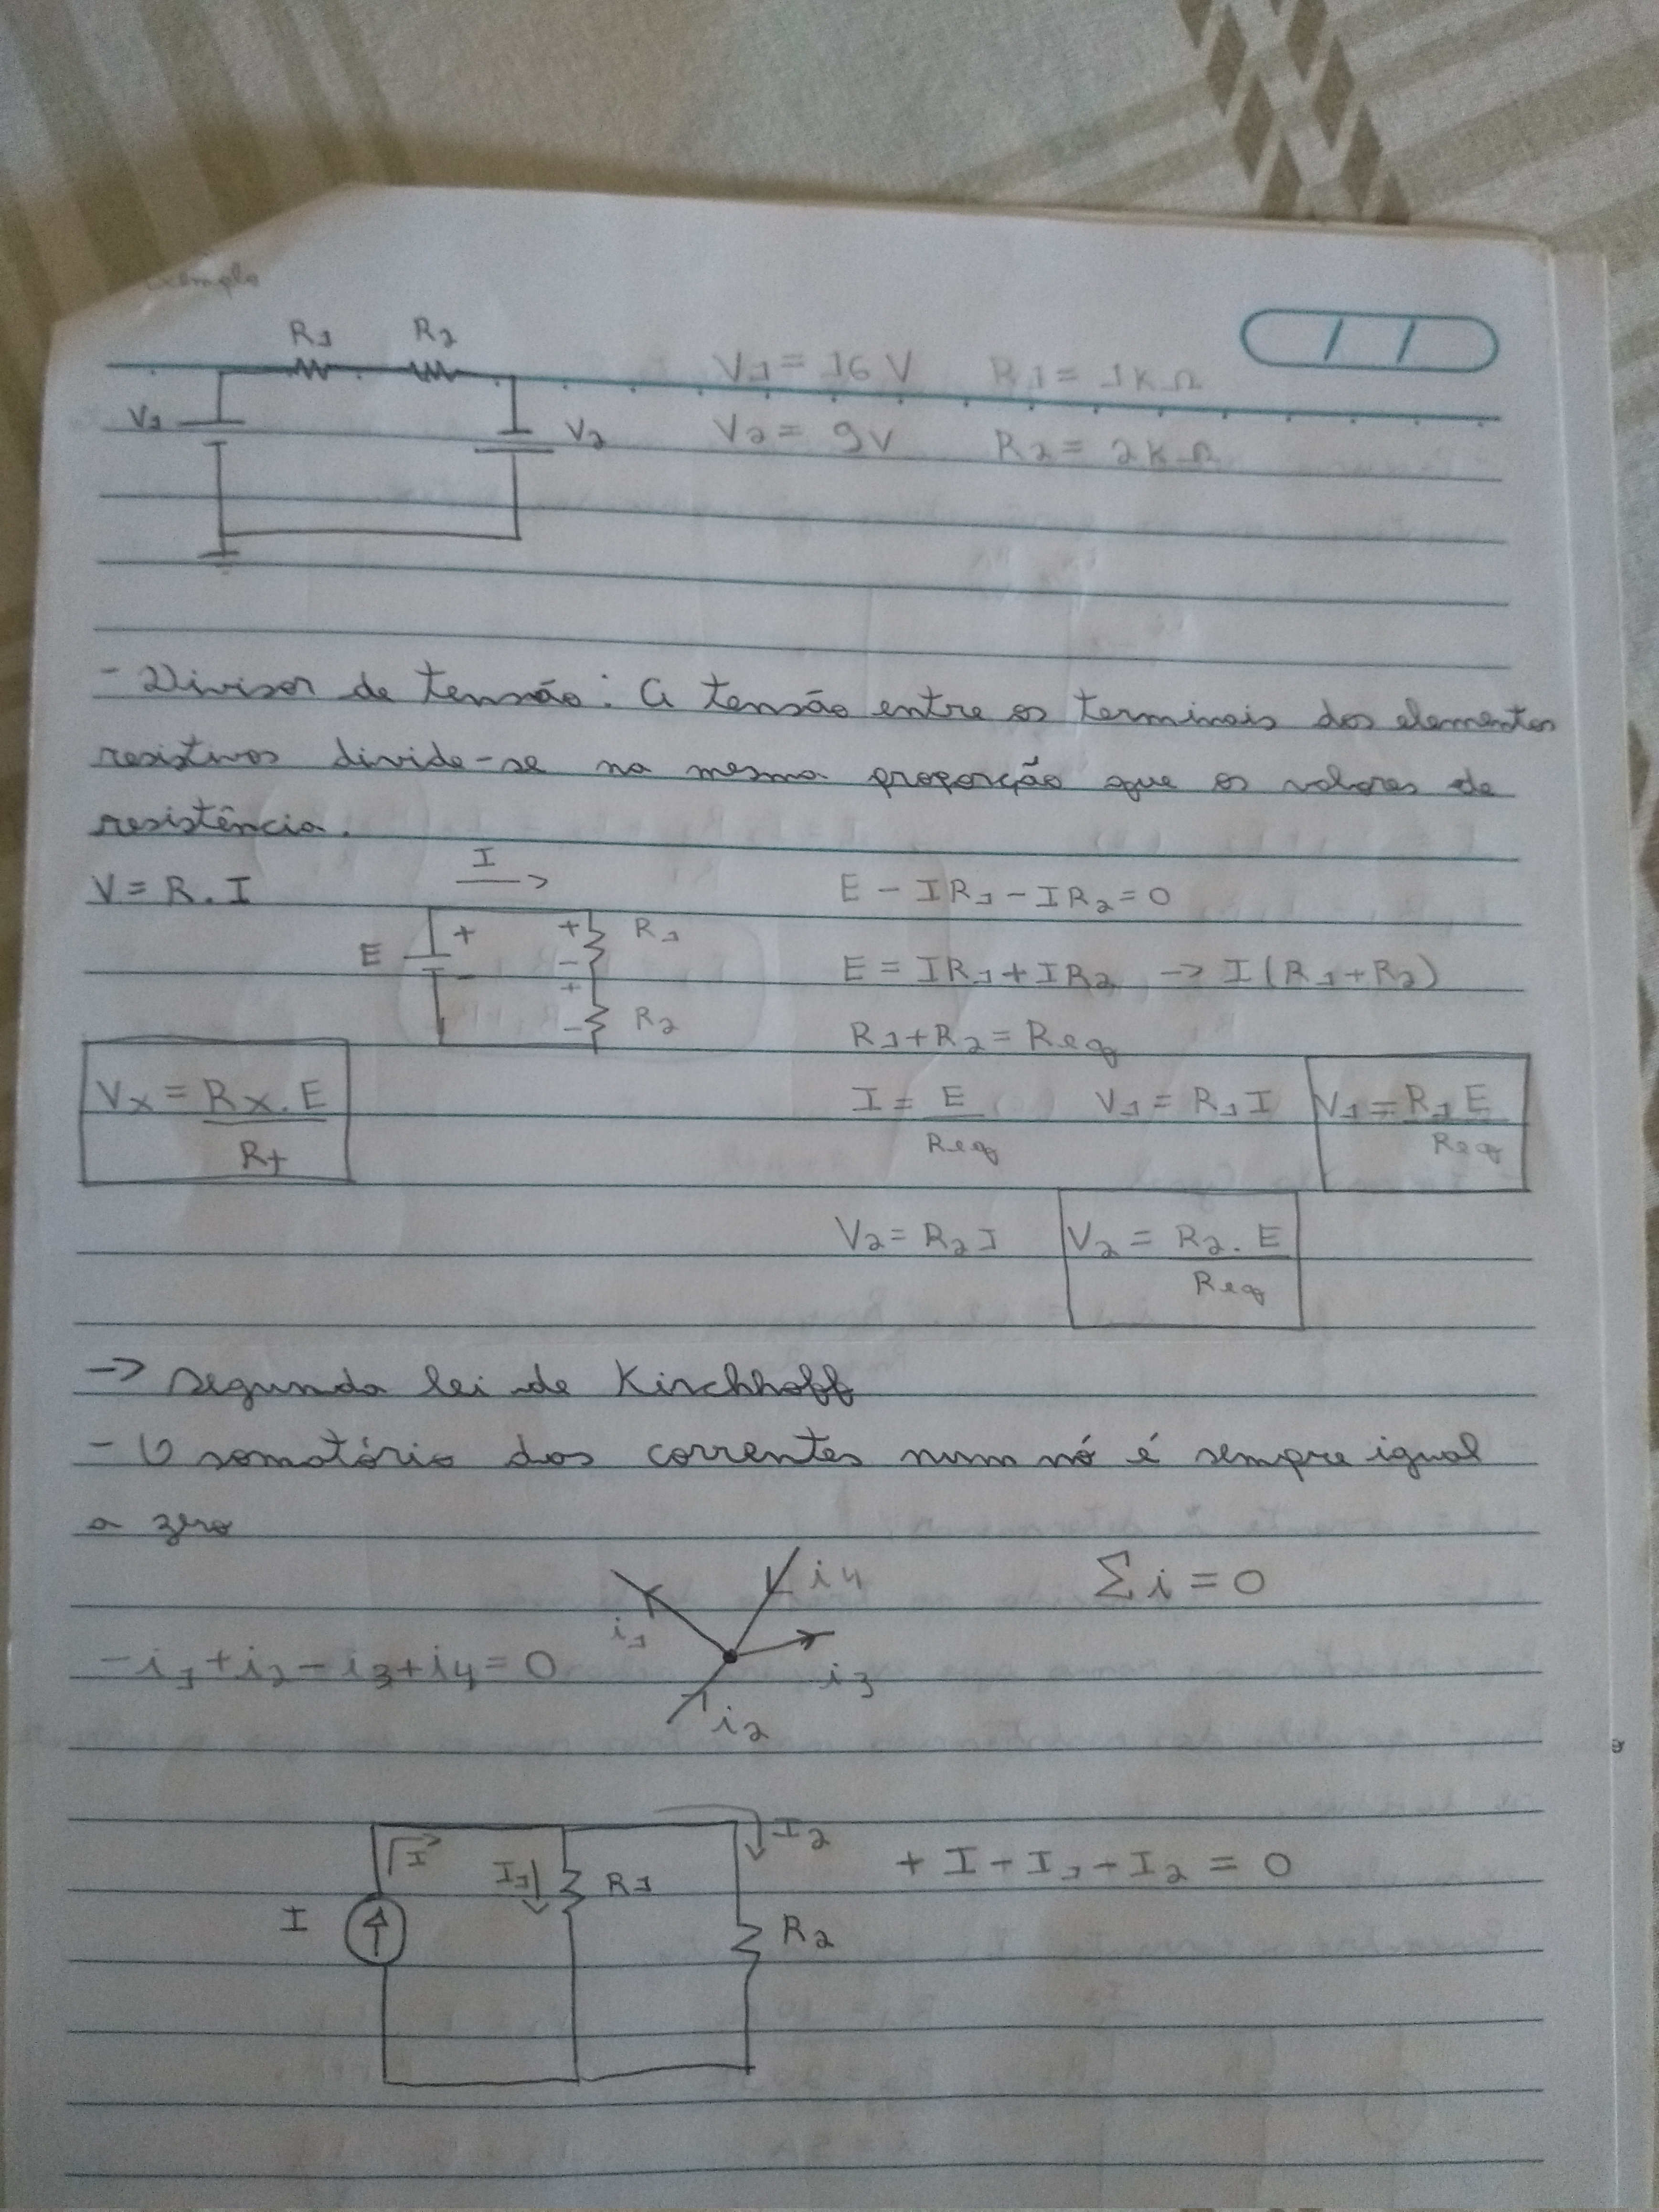 Exemplo
R1 R2
V1 = 16 V R1 = 1KΩ
V1 V2
V2 = 9V R2 = 2KΩ
- Divisor de tensão: A tensão entre os terminais dos elementos
resistivos divide-se na mesma proporção que os valores de
resistência.
V = R.I I E - IR1 - IR2 = 0
E + - + - R1
E = IR1 + IR2 -> I(R1+R2)
+ - R2
R1+R2 = Req
Vx = Rx.E / Rt
I = E / Req V1 = R1 I V1 = R1 E / Req
V2 = R2 I V2 = R2. E / Req
-> Segunda lei de Kirchhoff
- O somatório das correntes num nó é sempre igual
a zero
i4 Σi = 0
i1
-i1+i2-i3+i4=0 i3
i2
I I1 R1 I2 + I - I1 - I2 = 0
I R2